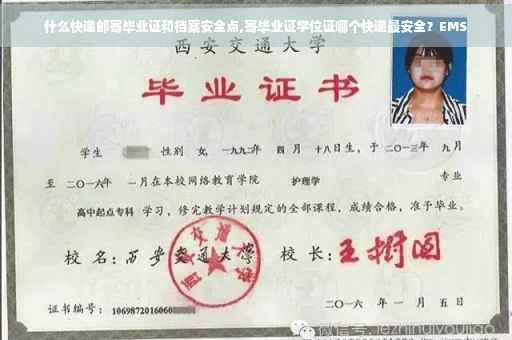 什么快递邮寄毕业证和档案安全点,寄毕业证学位证哪个快递最安全？EMS
西安交通大学
毕业证书
学生 性别 女，一九九二年 四月 十八日生，于二〇一三年 九月
至 二〇一六年 一月在本校网络教育学院 护理学 专业
高中起点专科 学习，修完教学计划规定的全部课程，成绩合格，准予毕业。
校名：西安交通大学 校长：王树国
西安交通大学
证书编号：1069872016060
二〇一六年 一月 五日
微信号: jezhinuiyoujiao